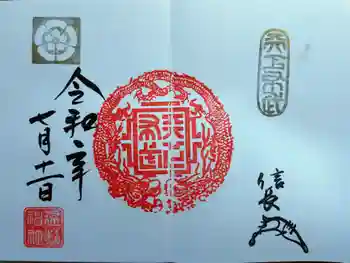 天下布武
信長
天下
布武
令和二年
七月十一日